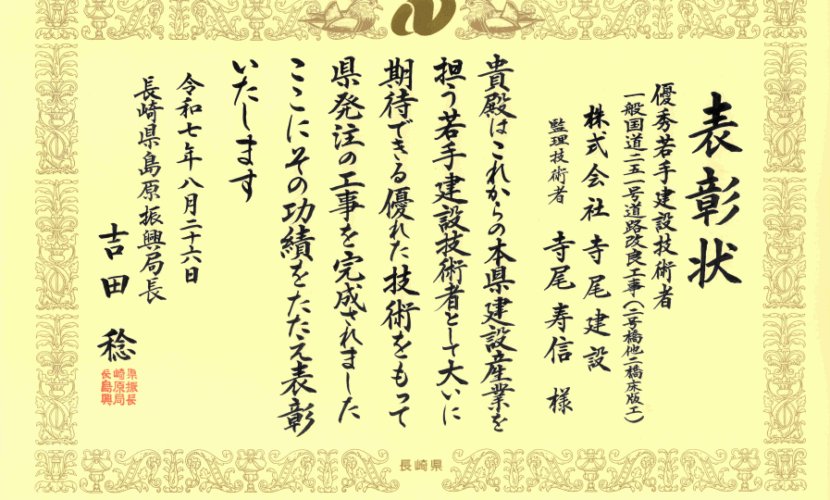 表彰状
優秀若手建設技術者
一般国道二五一号道路改良工事(二号橋他二橋床版工)
株式会社 寺尾建設
監理技術者 寺尾寿信 様
貴殿はこれからの本県建設産業を
担う若手建設技術者として大いに
期待できる優れた技術をもって
県発注の工事を完成されました
ここにその功績をたたえ表彰
いたします
令和七年八月二十六日
長崎県島原振興局長
吉田 稔
長崎県
島原振
興局長
長崎県